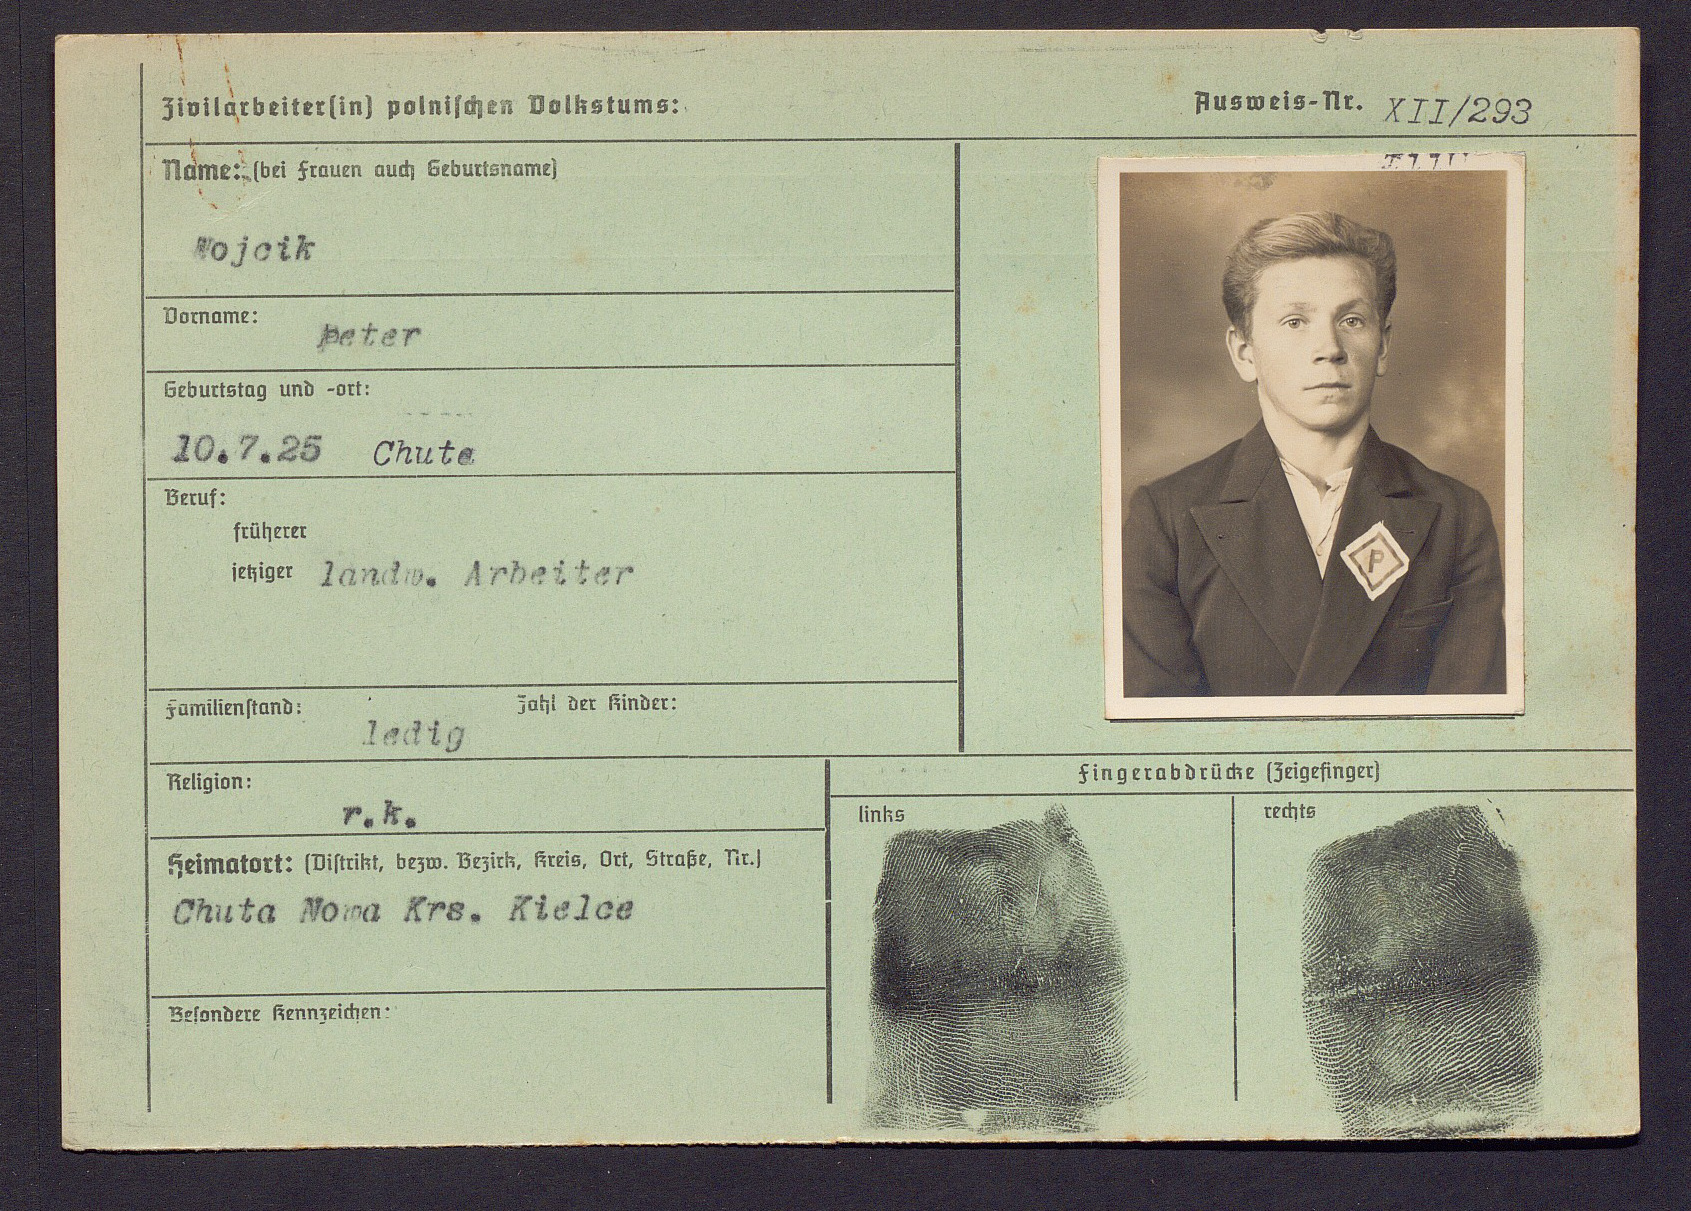 Zivilarbeiter(in) polnischen Volkstums:
Ausweis-Nr. XII/293
Name: (bei Frauen auch Geburtsname)
Wojcik
Vorname: Peter
Geburtstag und -ort:
10.7.25 Chuta
Beruf:
früherer
jetziger landw. Arbeiter
Familienstand: ledig
Zahl der Kinder:
Religion:
r.k.
Heimatort: (Distrikt, bezw. Bezirk, Kreis, Ort, Straße, Nr.)
Chuta Nowa Krs. Kielce
Besondere Kennzeichen:
P
Fingerabdrücke (Zeigefinger)
links
rechts